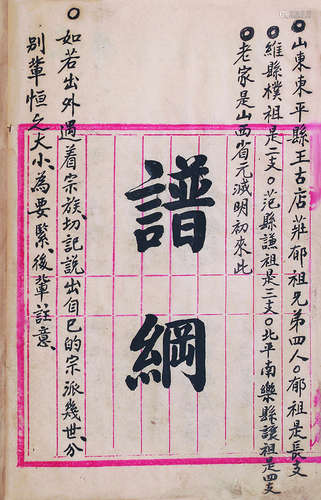 〇山東東平縣王古店莊郁祖兄弟四人〇郁祖是長支
〇維縣樸祖是二支〇范縣謙祖是三支〇北平南樂縣讓祖是四支
〇老家是山西省元滅明初來此
譜綱
〇如若出外遇着宗族切記說出自已的宗派幾世分
別輩恒之大小為要緊後輩註意